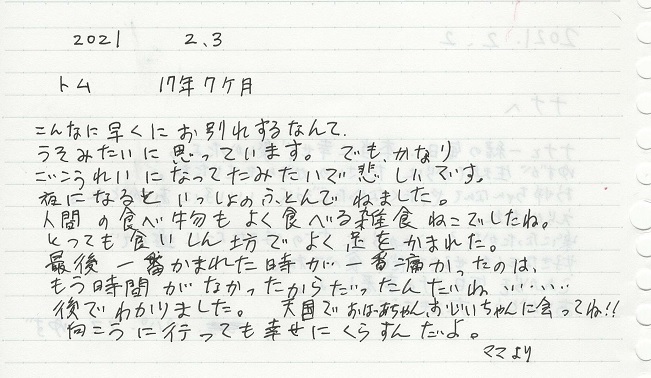 2021 2.3
トム 17年7ケ月
こんなに早くにお別れするなんて、
うそみたいに思っています。でも、かなり
ごこうれいになってたみたいで悲しいです。
夜になるといっしょのふとんでねました。
人間の食べ物もよく食べる雑食ねこでしたね。
とっても食いしん坊でよく足をかまれた。
最後一番かまれた時が一番痛かったのは、
もう時間がなかったからだったんだね……
後でわかりました。天国でおばあちゃん、おじいちゃんに会ってね!!
向こうに行っても幸せにくらすんだよ。
ママより